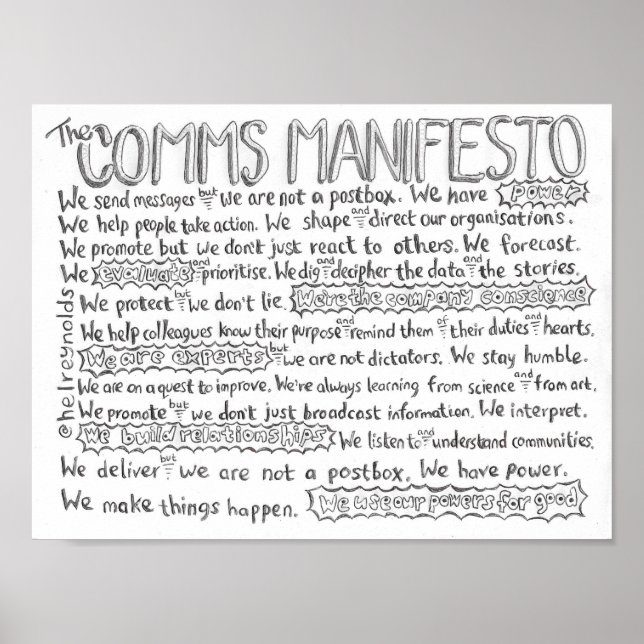 The COMMS MANIFESTO
We send messages but we are not a postbox. We have power
We help people take action. We shape and direct our organisations.
We promote but we don't just react to others. We forecast.
We evaluate and prioritise. We dig and decipher the data and the stories.
We protect but we don't lie. We're the company conscience
We help colleagues know their purpose and remind them of their duties and hearts.
We are experts but we are not dictators. We stay humble.
We are on a quest to improve. We're always learning from science and from art.
We promote but we don't just broadcast information. We interpret.
We build relationships We listen to and understand communities.
We deliver but we are not a postbox. We have power.
We make things happen. We use our powers for good
@helreynolds